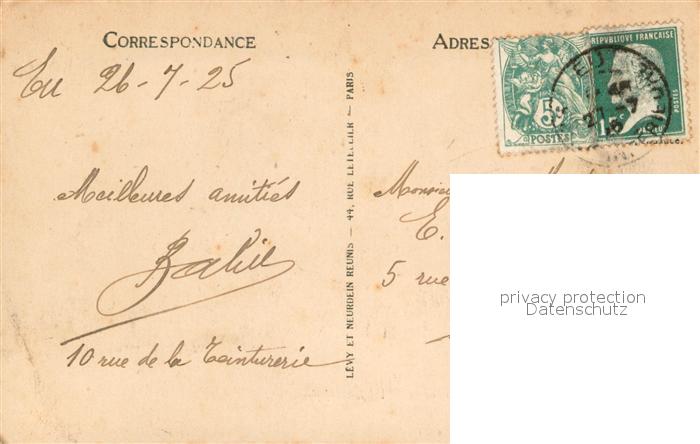 CORRESPONDANCE
ADRES
Eu 26-7-25
Meilleures amitiés
10 rue de la Teinturerie
LÉVY ET NEURDEIN REUNIS — 44, RUE LETELLIER — PARIS
5c
POSTES
REPVBLIQUE FRANÇAISE
15c
POSTES
EU
27-7
Monsieur
E.
5 rue
privacy protection
Datenschutz